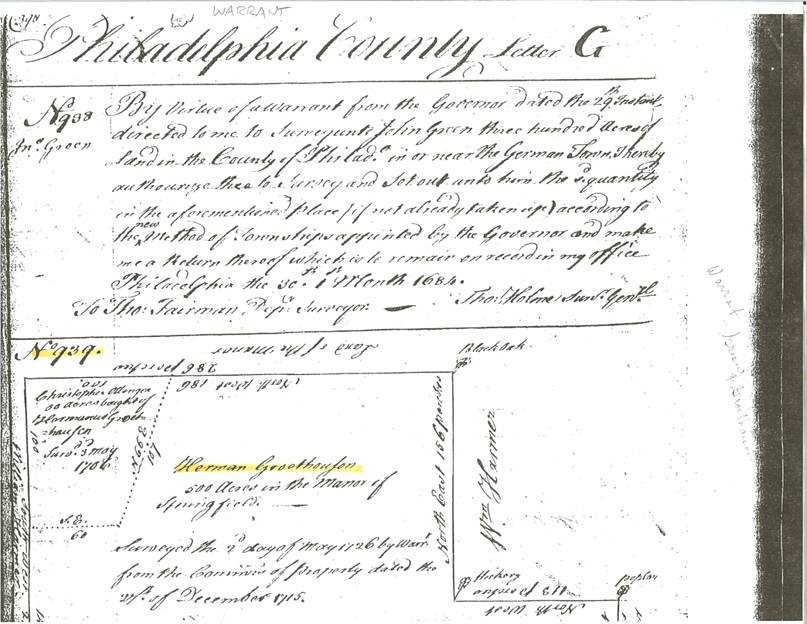 WARRANT
Philadelphia County Letter G
No. 938
Jno. Green
By Virtue of a Warrant from the Governor dated the 29th Instant
directed to me to Survey unto John Green three hundred Acres of
Land in the County of Philada. in or near the German Town, I hereby
authourise thee to Survey and Set out unto him the sd. quantity
in the aforementioned place (if not already taken up) according to
the new Method of Townships appointed by the Governor and make
me a Return thereof which is to remain on record in my office
Philadelphia the 30th 1st Month 1684.
To Tho: Fairman Depy. Surveyor. — Tho: Holme Survr. Genll
No. 939.
Land of the Manor
286 perches
North West 186
Christopher
00 acres bought of
Hermanus Groet-
hausen
Survd. 3 may
1706
100
107
S.E.
60
Herman Groethousen
500 Acres in the Manor of
Springfield. —
Surveyed the 2d day of May 1726 by Warrt
from the Commrs of property dated the
21st of December 1715.
North East 156 perches
Black Oak
Wm Harmer
Hickory
poplar
113 perches
North West
Warrant